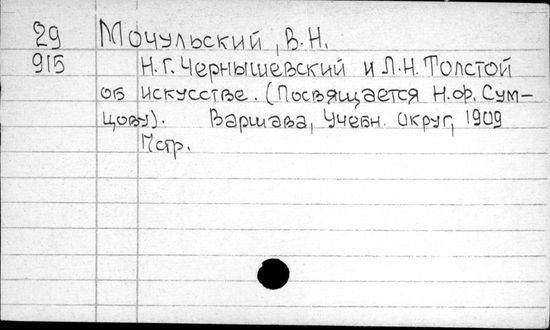 29 Мочульский, В.Н.
915 Н.Г. Чернышевский и Л.Н. Толстой
об искусстве. (Посвящается Н.Ф. Сум-
цову). Варшава, Учебн. округ, 1909
17стр.